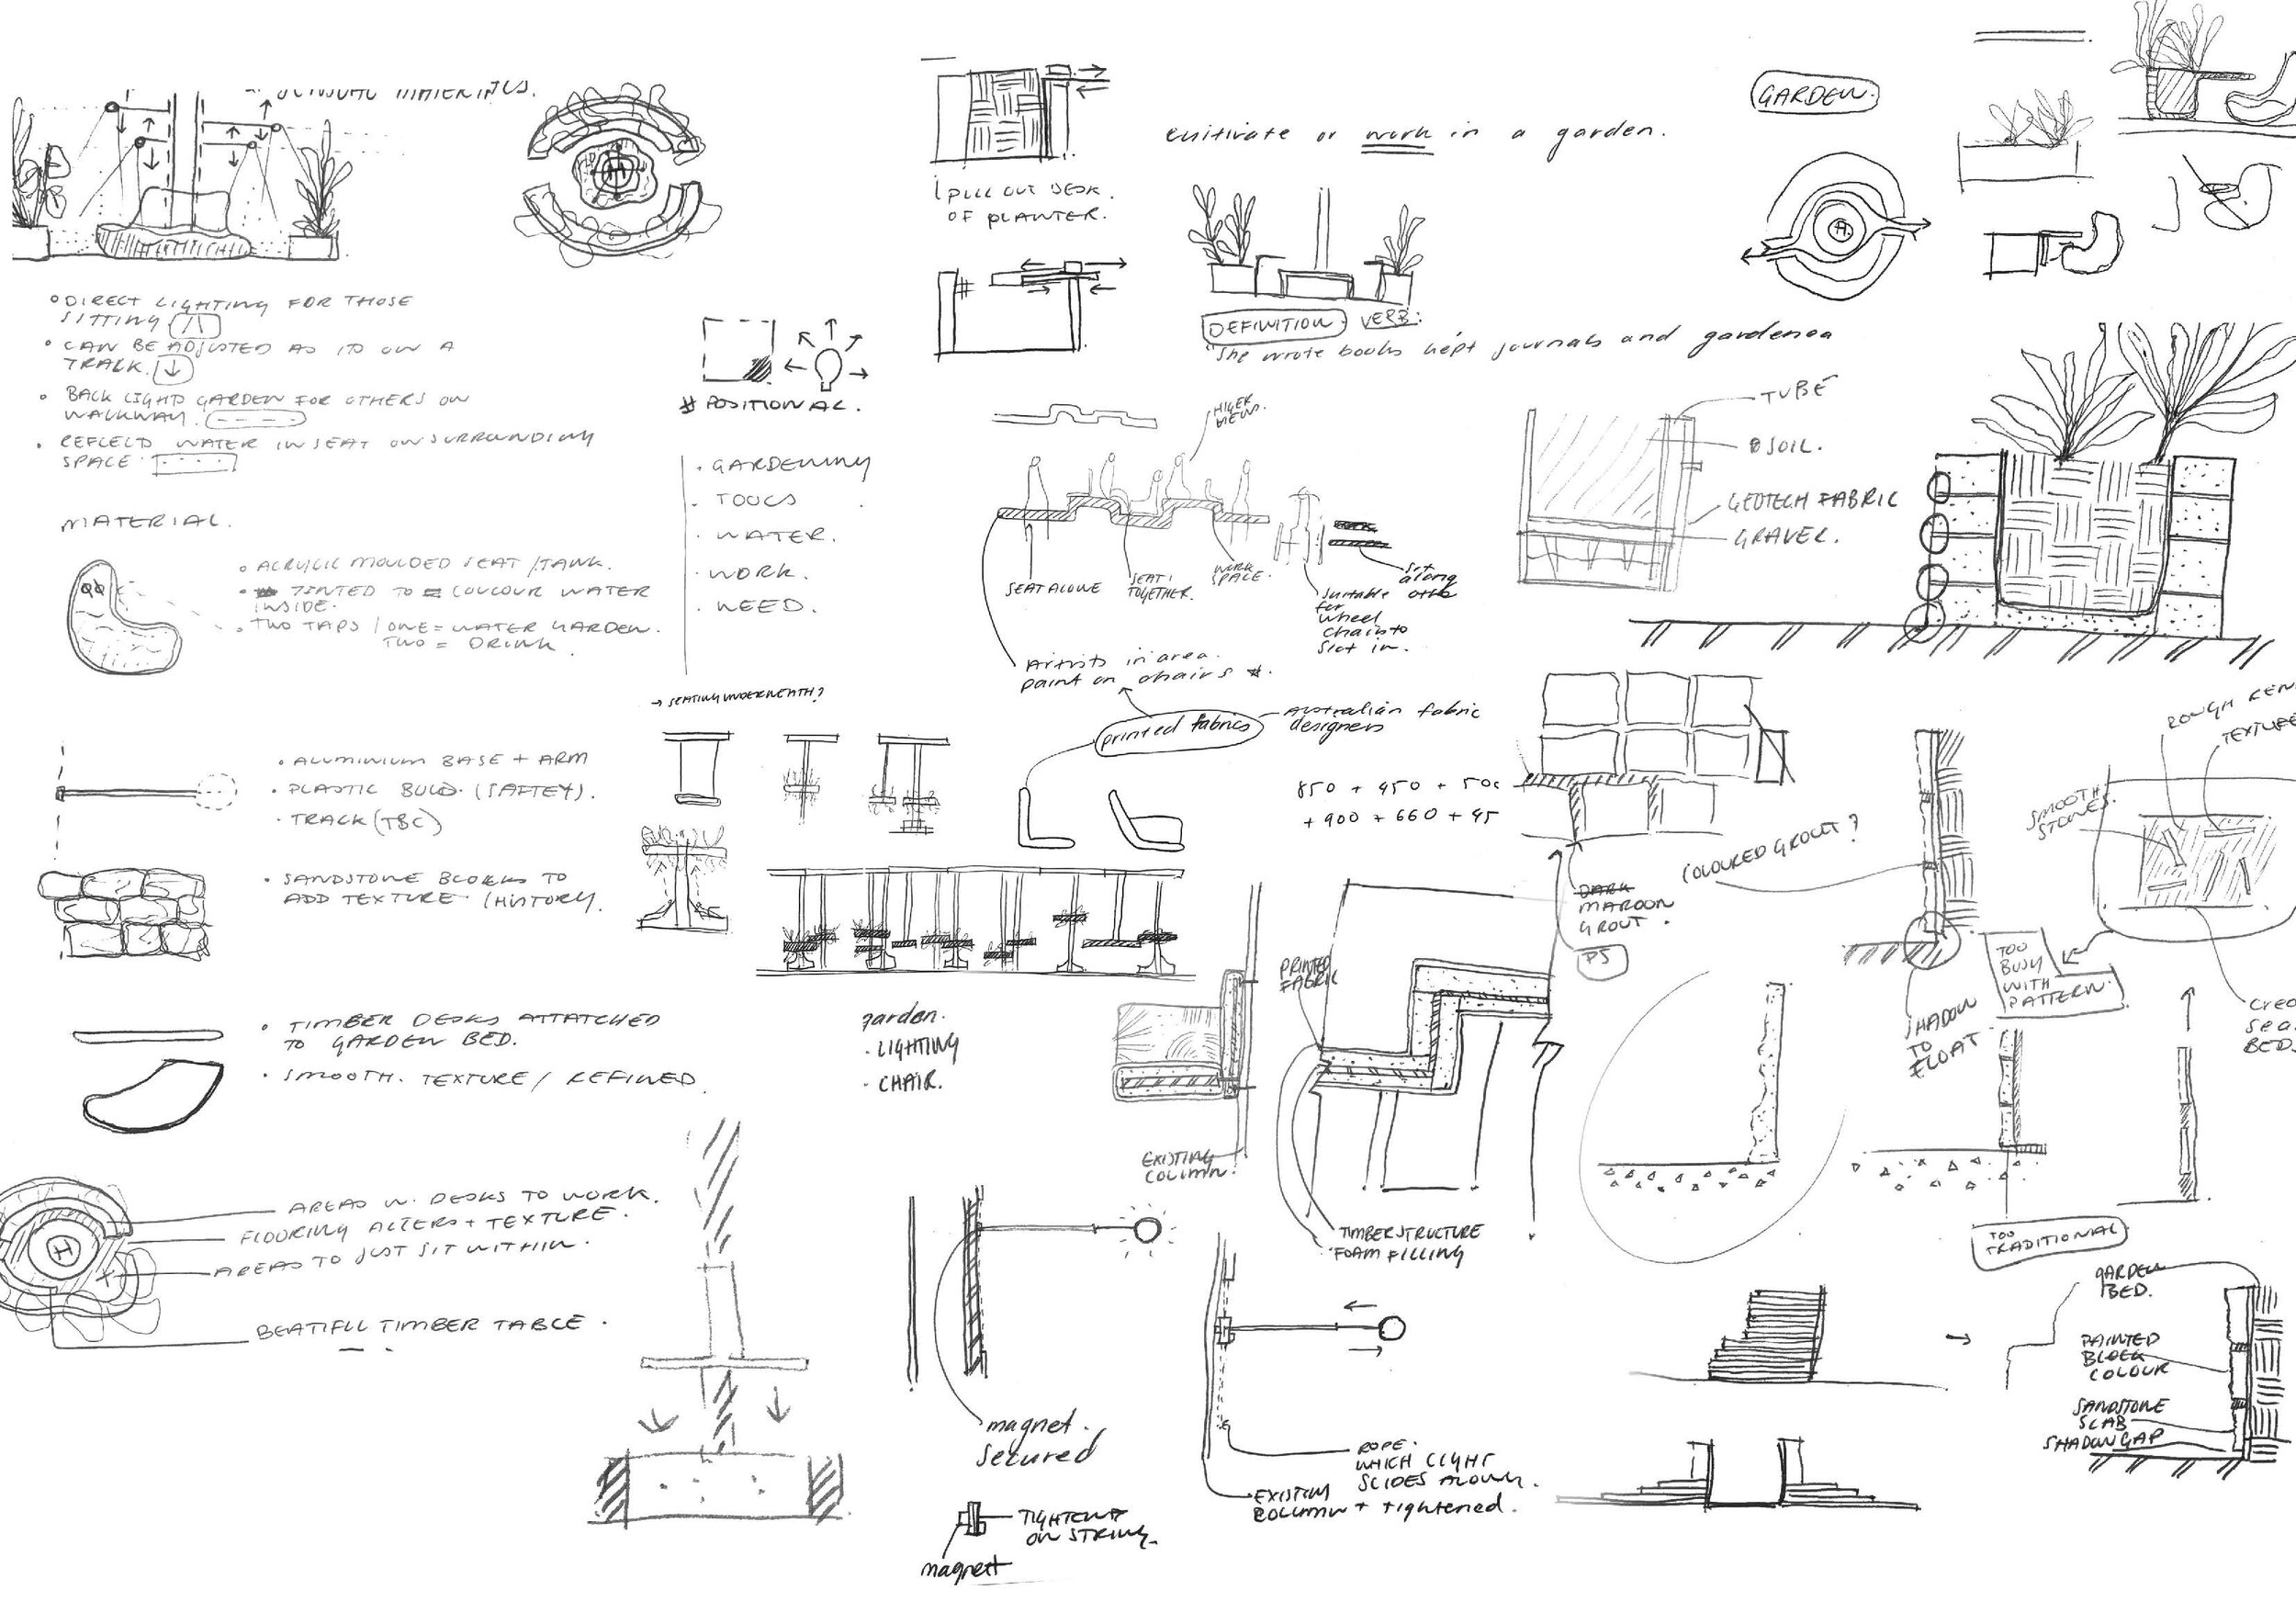 MATERIALS.
o DIRECT LIGHTING FOR THOSE
SITTING
• CAN BE ADJUSTED AS ITS ON A
TRACK.
• BACK LIGHT GARDEN FOR OTHERS ON
WALKWAY.
• REFLECTS WATER IN SEAT ON SURROUNDING
SPACE
MATERIAL.
• ACRYLIC MOULDED SEAT / TANK.
• TINTED TO COLOUR WATER
INSIDE.
• TWO TAPS / ONE = WATER GARDEN.
TWO = DRINK.
• ALUMINIUM BASE + ARM
• PLASTIC BULB. (SAFTEY).
• TRACK (TBC)
• SANDSTONE BLOCKS TO
ADD TEXTURE / HISTORY.
• TIMBER DESKS ATTATCHED
TO GARDEN BED.
• SMOOTH. TEXTURE / REFINED.
AREAS W. DESKS TO WORK.
FLOORING ALTERS + TEXTURE.
AREAS TO JUST SIT WITHIN.
BEATIFUL TIMBER TABLE.
H
H
# POSITIONAL.
• GARDENING
• TOOLS
• WATER.
• WORK.
• NEED.
→ SEATING UNDERNEATH?
garden.
• LIGHTING
• CHAIR.
PULL OUT DESK.
OF PLANTER.
cultivate or work in a garden.
DEFINITION. VERB:
"She wrote books kept journals and gardened
HIGER
VIEWS.
SEAT ALONE
SEAT
TOGETHER.
WORK
SPACE.
Suitable
for
wheel
chairs to
slot in.
Sit
along
Artists in area.
paint on chairs *.
printed fabrics
Australian fabric
designers
850 + 450 + 500
+ 900 + 660 + 45
PRINTED
FABRIC
EXISTING
COLUMN.
TIMBER STRUCTURE
FOAM FILLING
magnet.
secured
TIGHTENS
ON STRING.
magnett
ROPE.
WHICH LIGHT
SLIDES ALONG.
EXISTING
COLUMN + tightened.
GARDEN.
H
TUBE
SOIL.
GEOTECH FABRIC
GRAVEL.
DARK
MAROON
GROUT.
COLOURED GROUT?
SMOOTH
STONES.
ROUGH
TEXTURE
TOO
BUSY
WITH
PATTERN.
SHADOW
TO
FLOAT
BED.
TOO
TRADITIONAL
GARDEN
BED.
PAINTED
BLOCK
COLOUR
SANDSTONE
SLAB
SHADOW GAP